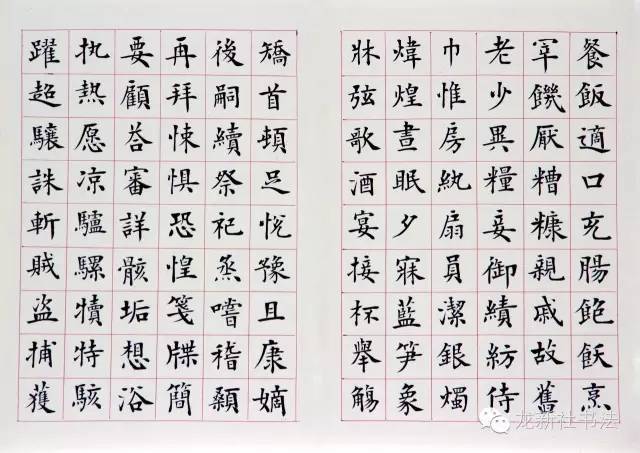 餐飯適口充腸飽飫烹
宰饑厭糟糠親戚故舊
老少異糧妾御績紡侍
巾惟房紈扇員潔銀燭
煒煌晝眠夕寐藍笋象
牀弦歌酒宴接杯舉觴
矯首頓足悅豫且康嫡
後嗣續祭祀烝嚐稽顙
再拜悚懼恐惶箋牒簡
要顧荅審詳骸垢想浴
执熱愿凉驢騾犢特駭
躍超驤誅斬賊盜捕獲
龙新社书法